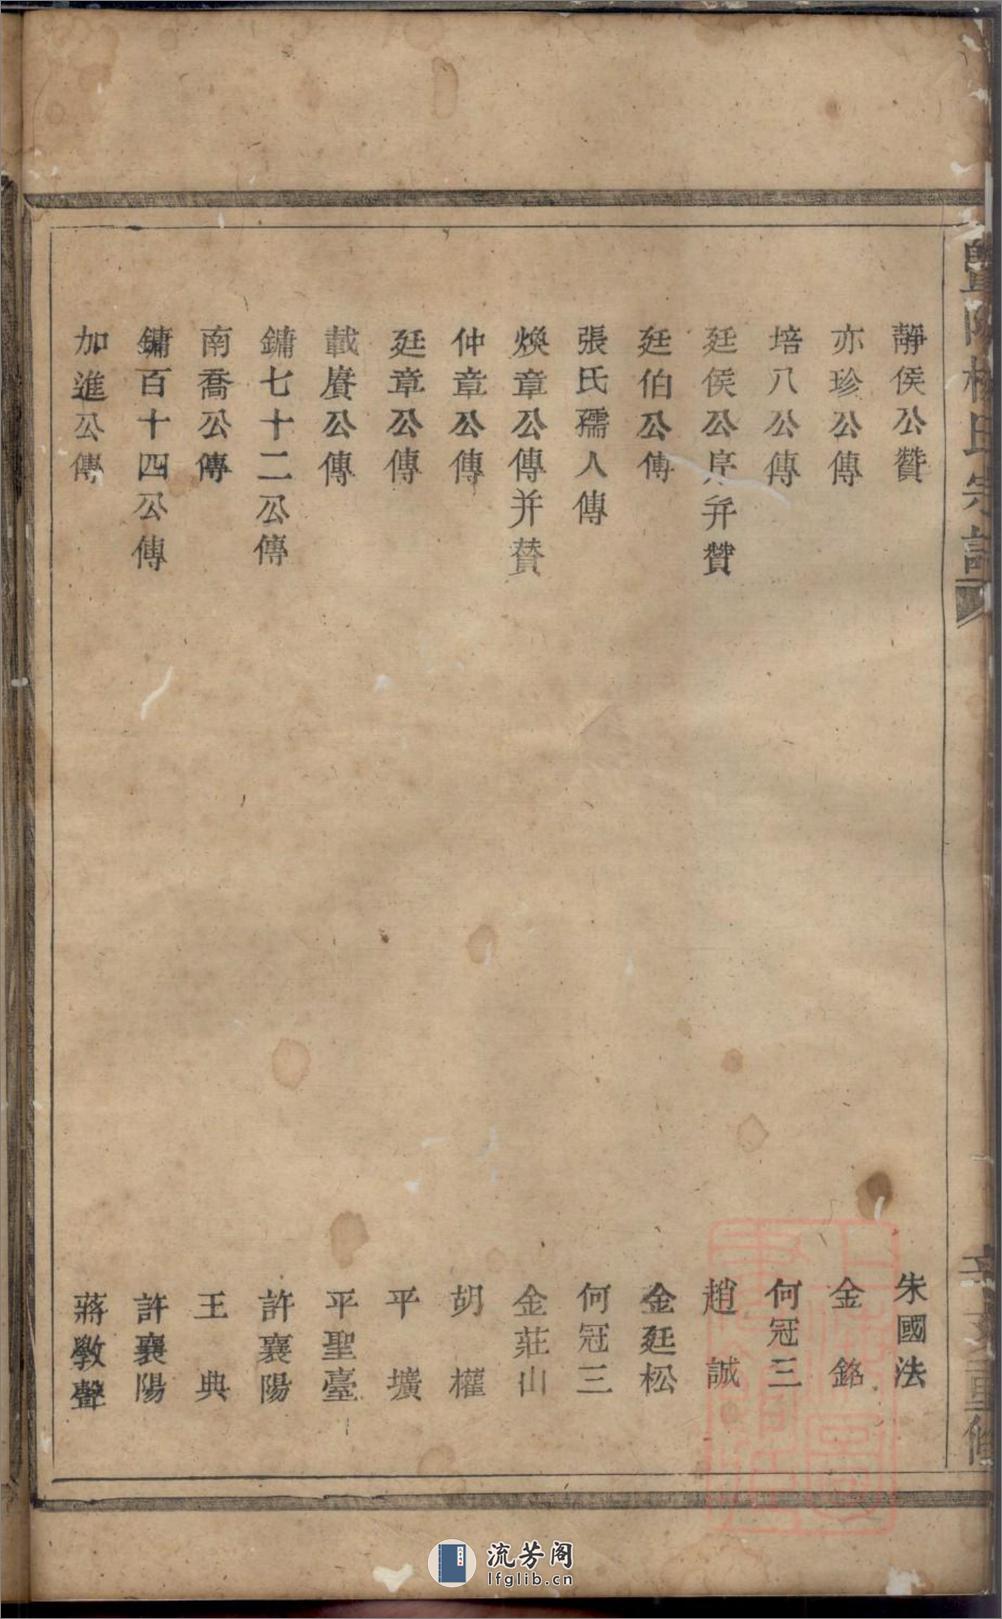 暨陽楊氏宗譜
辛亥重修
靜侯公贊 朱國法
亦珍公傳 金銘
培八公傳 何冠三
廷侯公序并贊 趙誠
廷伯公傳 金廷松
張氏孺人傳 何冠三
煥章公傳并贊 金莊山
仲章公傳 胡權
廷章公傳 平壙
載賡公傳 平聖臺
鏞七十二公傳 許襄陽
南喬公傳 王典
鏞百十四公傳 許襄陽
加進公傳 蔣斆聲
流芳阁
lfglib.cn